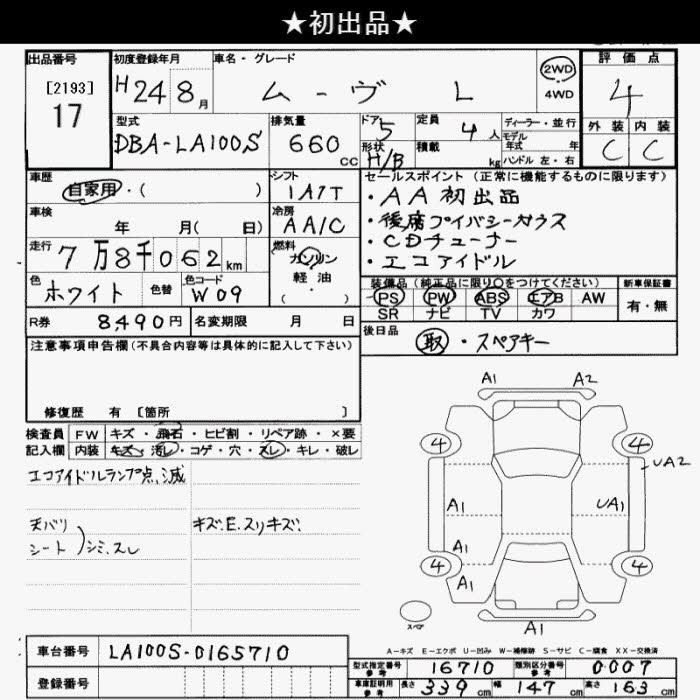 ★初出品★
出品番号
[2193]
17
初度登録年月
H24 8月
車名・グレード
ムーヴ L
2WD
4WD
評価点
4
外装 内装
C C
型式
DBA-LA100S
排気量
660 cc
ドア 5
形状 H/B
定員 4人
積載 kg
ディーラー・並行
モデル年式 年
ハンドル 左・右
車歴
自家用・( )
シフト
IA7T
セールスポイント (正常に機能するものに限ります)
・AA初出品
・後席プイバシーガウス
・CDチューナー
・エコアイドル
車検
年 月( 日)
冷房
AA/C
走行
7万8千062km
燃料
ガソリン
・
軽油
( )
色
ホワイト
色替
色コード
W09
装備品 (純正品に限り〇をつけてください)
PS PW ABS エアB AW
SR ナビ TV カワ
新車保証書
有・無
R券 8490円
名変期限 月 日
後日品
取・スペアキー
注意事項申告欄 (不具合内容等は具体的に記入して下さい)
修復歴 有 [箇所 ]
検査員記入欄
FW キズ・飛石・ヒビ割・リペア跡・×要
内装 キズ・汚レ・コゲ・穴・スレ・キレ・破レ
エコアイドルランプ点滅
天バリ
シート
)シミ.スレ
キズ.E.スリキズ.
A1 A2
4 4
UA2
A1 UA1
A1
4 A1 4
A1
スペア
A-キズ E-エクボ U-凹み W-補修跡 S-サビ C-腐食 XX-交換済
車台番号 LA100S-0165710
登録番号
型式指定番号 参考 16710 類別区分番号 参考 0007
車庫証明用 参考 長さ 339cm 幅 147cm 高さ 163cm